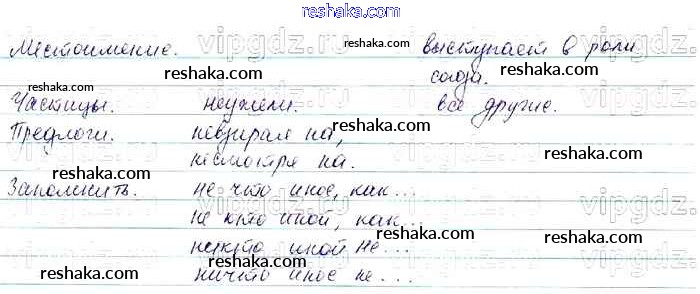 reshaka.com
Местоимение. выступает в роли
reshaka.com союза. reshaka.com
Частицы. неужели. все другие.
Предлоги. невзирая на, reshaka.com
несмотря на.
reshaka.com reshaka.com
Запомнить. не что иное, как...
не кто иной, как...
reshaka.com
никто иной не...
reshaka.com ничто иное не... reshaka.com
vipgdz.ru